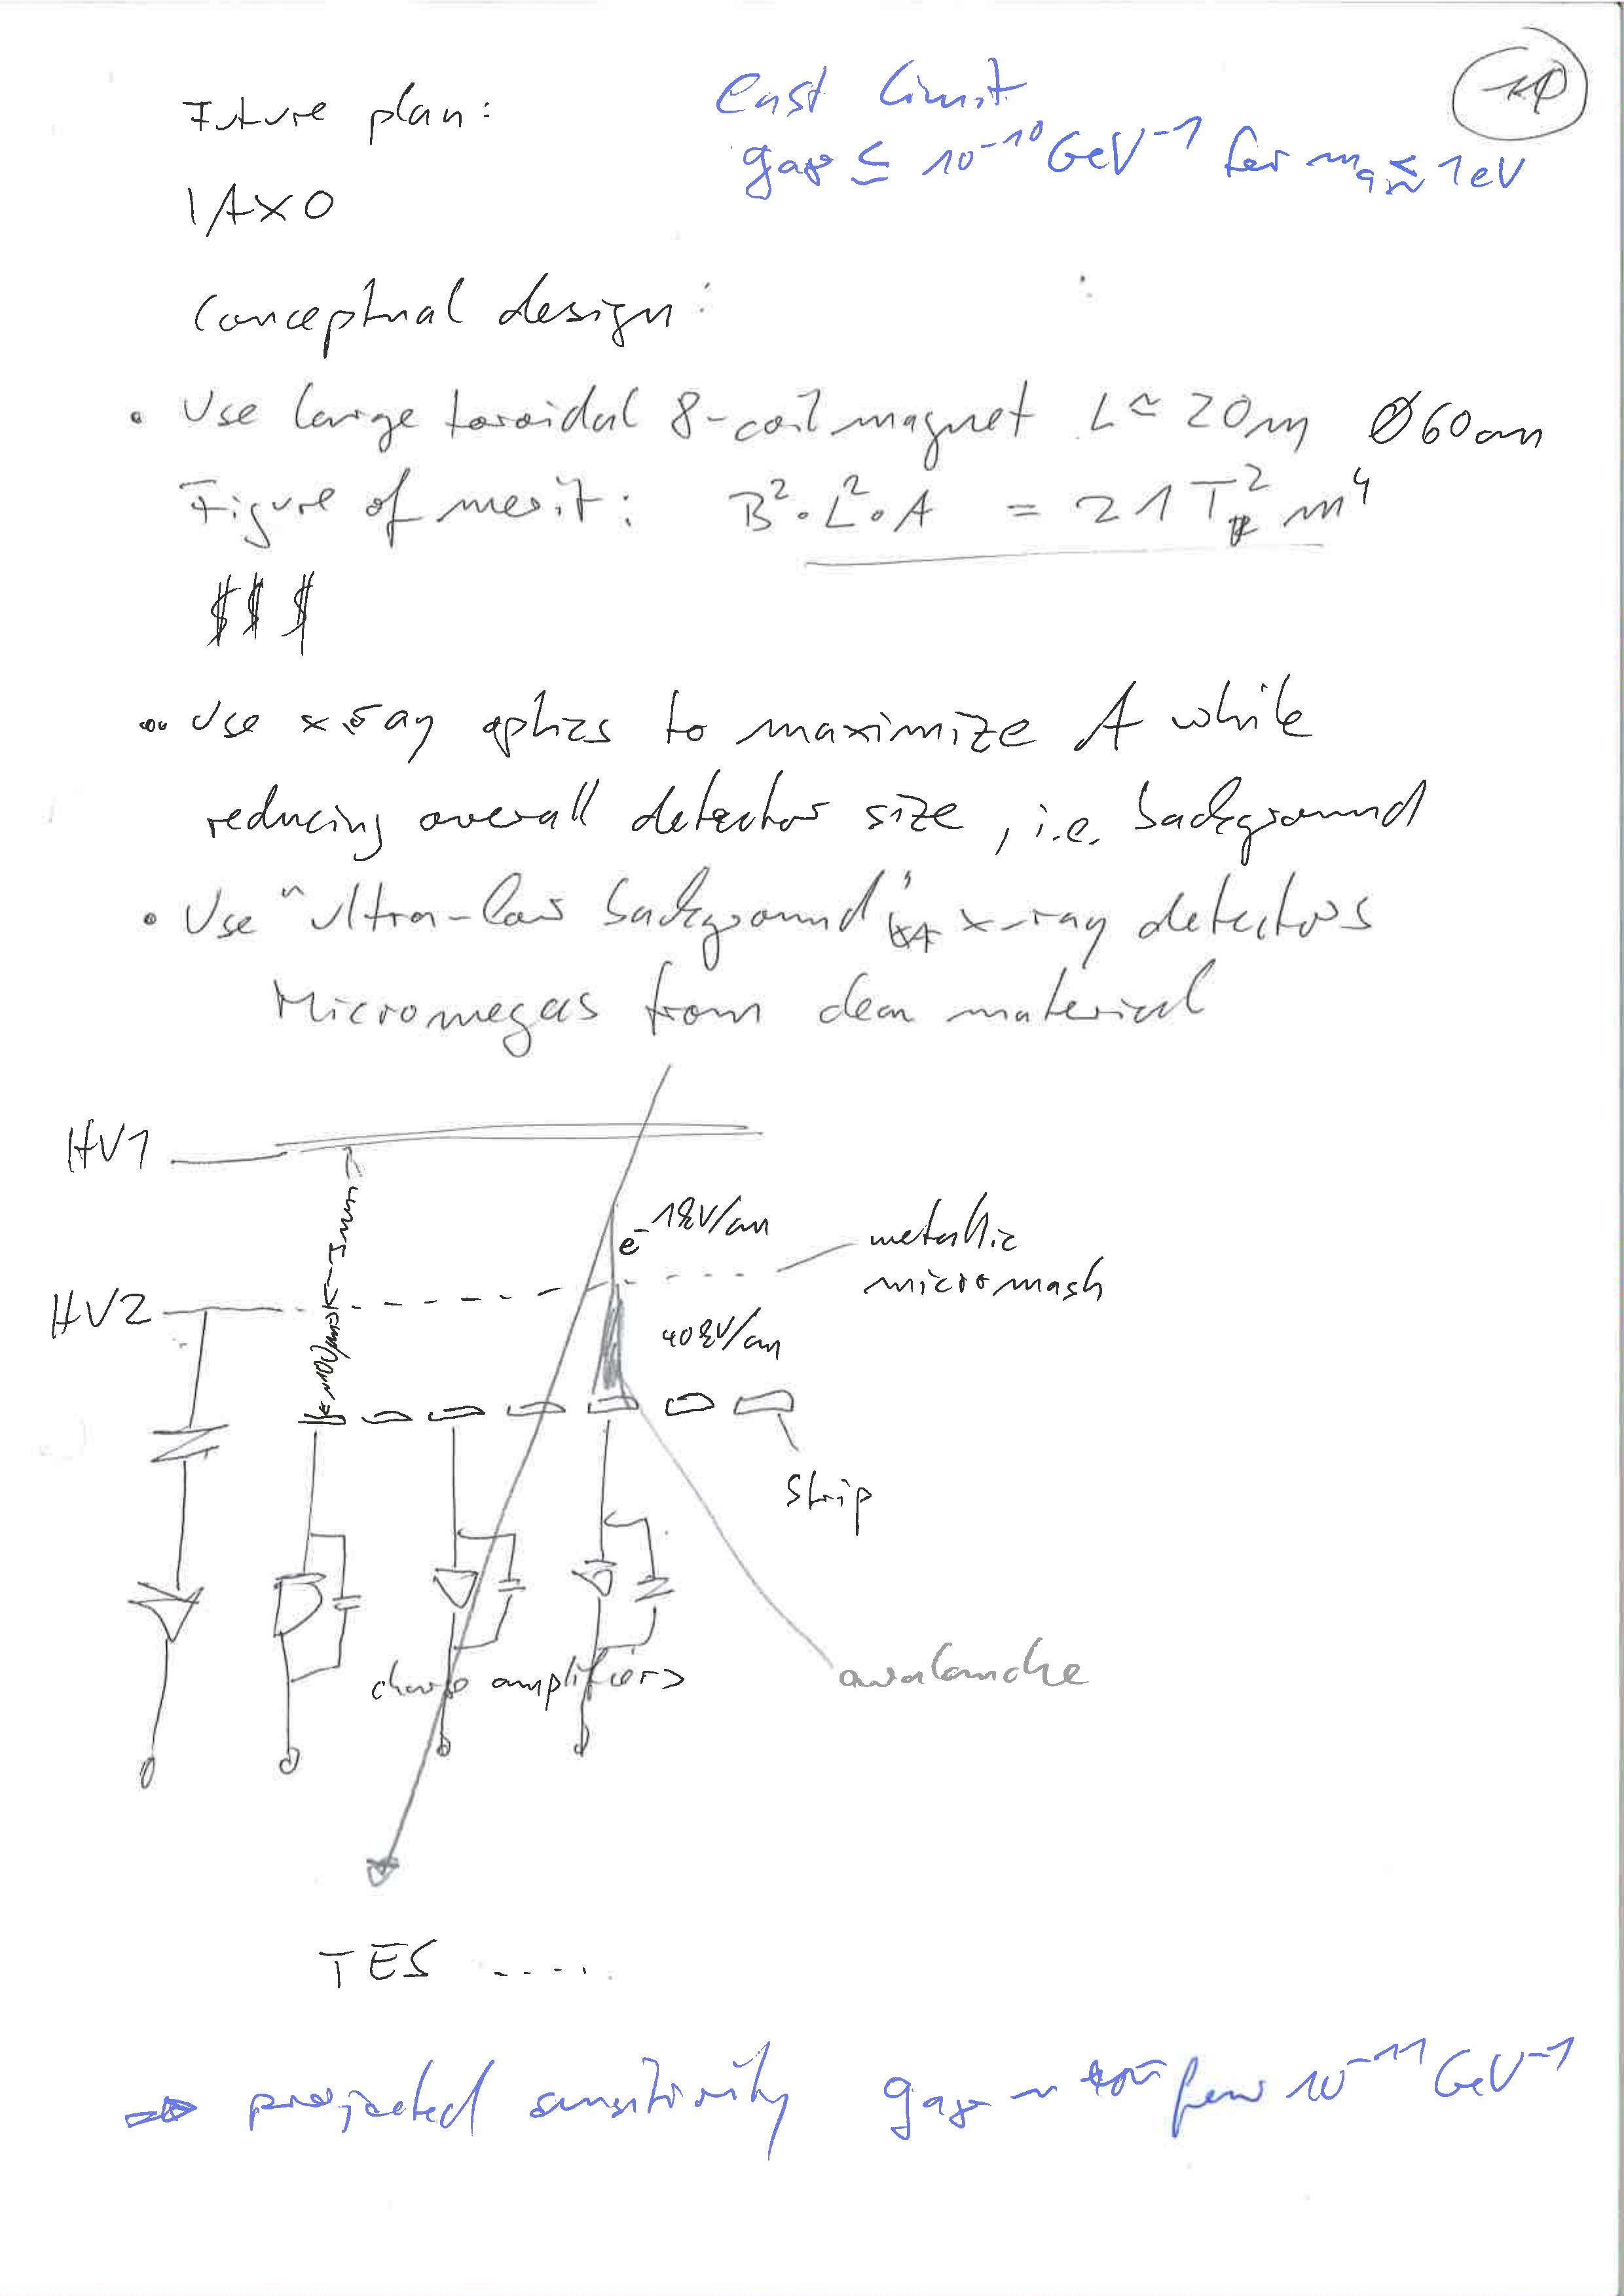 Future plan:
Cast limit
g_aγ ≤ 10^-10 GeV^-1 for m_a ≲ 1eV
IAXO
Conceptual design:
• Use large toroidal 8-coil magnet L ≃ 20m Ø60cm
Figure of merit: B²·L²·A = 21 T² m⁴
$$$
• Use x-ray optics to maximize A while
reducing overall detector size, i.e. background
• Use "ultra-low background" x-ray detectors
Micromegas from clean material
HV1
e⁻ 1kV/cm
metallic
micromash
HV2
40kV/cm
Strip
charge amplifiers
avalanche
TES .....
⇒ projected sensitivity g_aγ ~ few 10^-11 GeV^-1